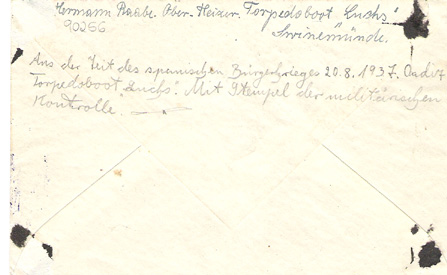 Hermann Raabe. Ober-Heizer. Torpedoboot "Luchs"
90256. Swinemünde.
Aus der Zeit des spanischen Bürgerkrieges 20.8.1937. Cadiz
Torpedoboot "Luchs". Mit Stempel der militärischen
Kontrolle.